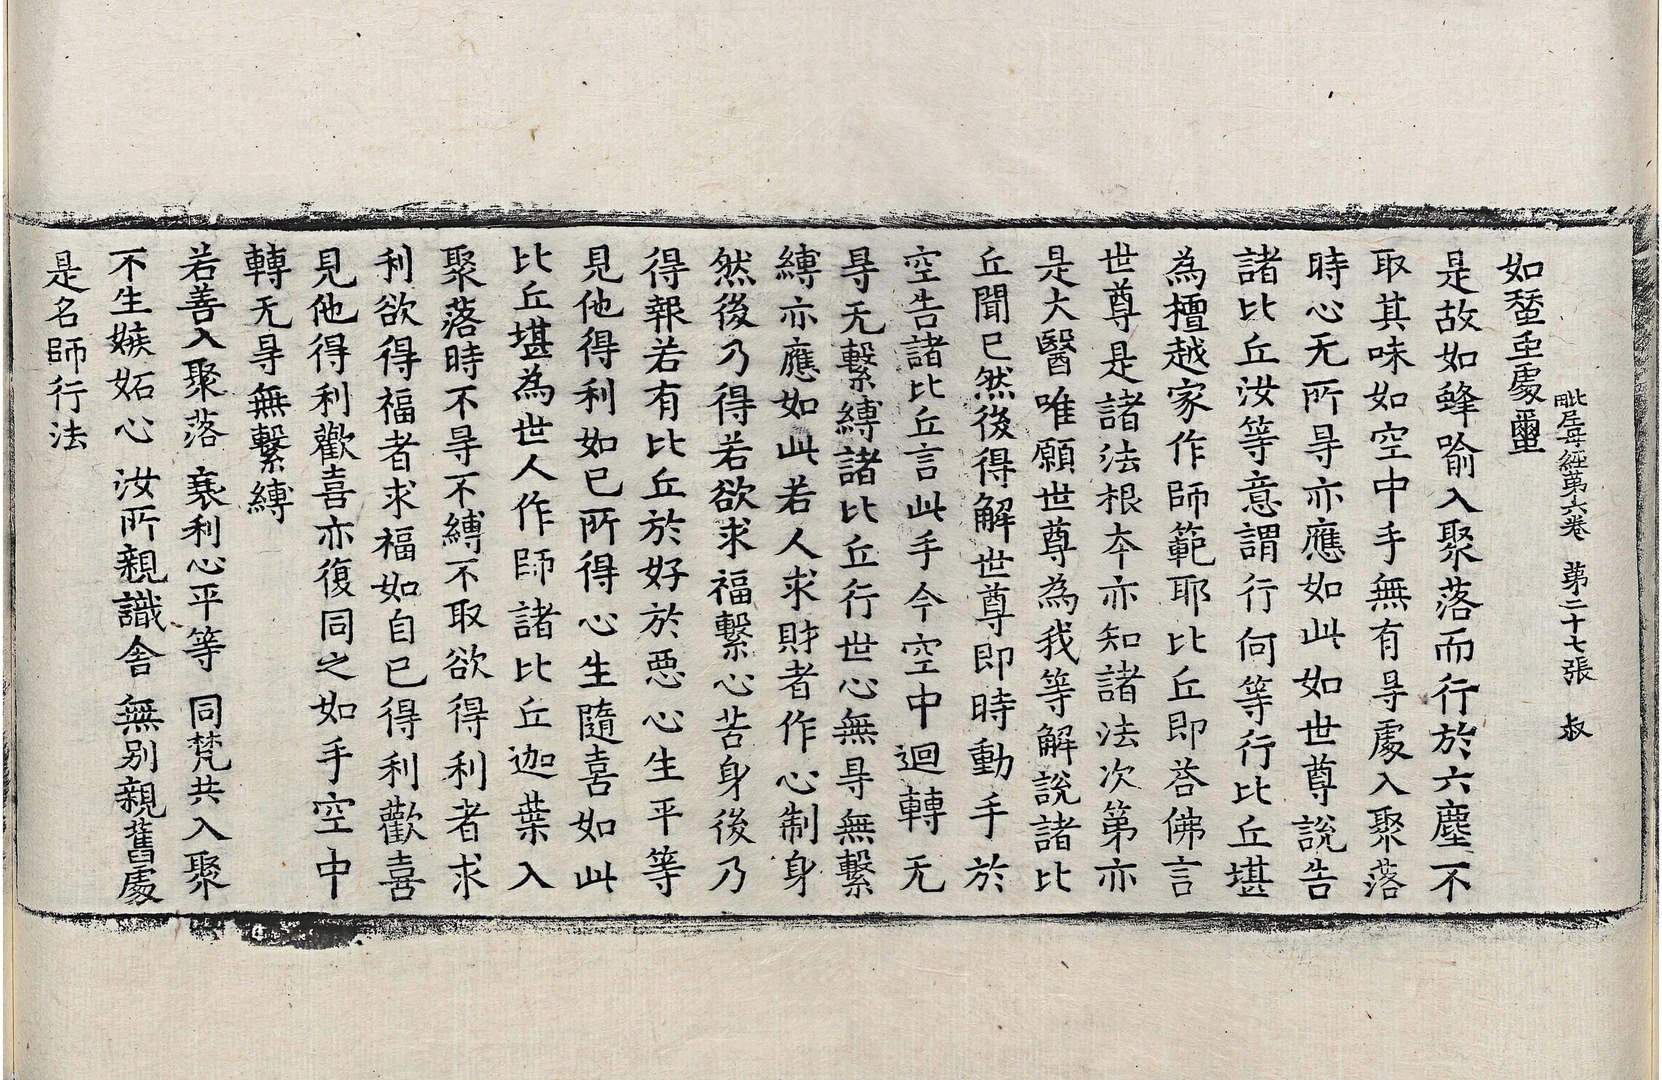 毗尼母經第六卷 第二十七張 叔
如蝅王處𡍩
是故如蜂喻入聚落而行於六塵不
取其味如空中手無有㝵處入聚落
時心无所㝵亦應如此如世尊說告
諸比丘汝等意謂行何等行比丘堪
為檀越家作師範耶比丘即荅佛言
世尊是諸法根本亦知諸法次第亦
是大醫唯願世尊為我等解說諸比
丘聞已然後得解世尊即時動手於
空告諸比丘言此手今空中迴轉无
㝵无繫縛諸比丘行世心無㝵無繫
縛亦應如此若人求財者作心制身
然後乃得若欲求福繫心苦身後乃
得報若有比丘於好於惡心生平等
見他得利如已所得心生隨喜如此
比丘堪為世人作師諸比丘迦葉入
聚落時不㝵不縛不取欲得利者求
利欲得福者求福如自已得利歡喜
見他得利歡喜亦復同之如手空中
轉无㝵無繫縛
若善入聚落 衰利心平等 同梵共入聚
不生嫉妬心 汝所親識舍 無別親舊處
是名師行法